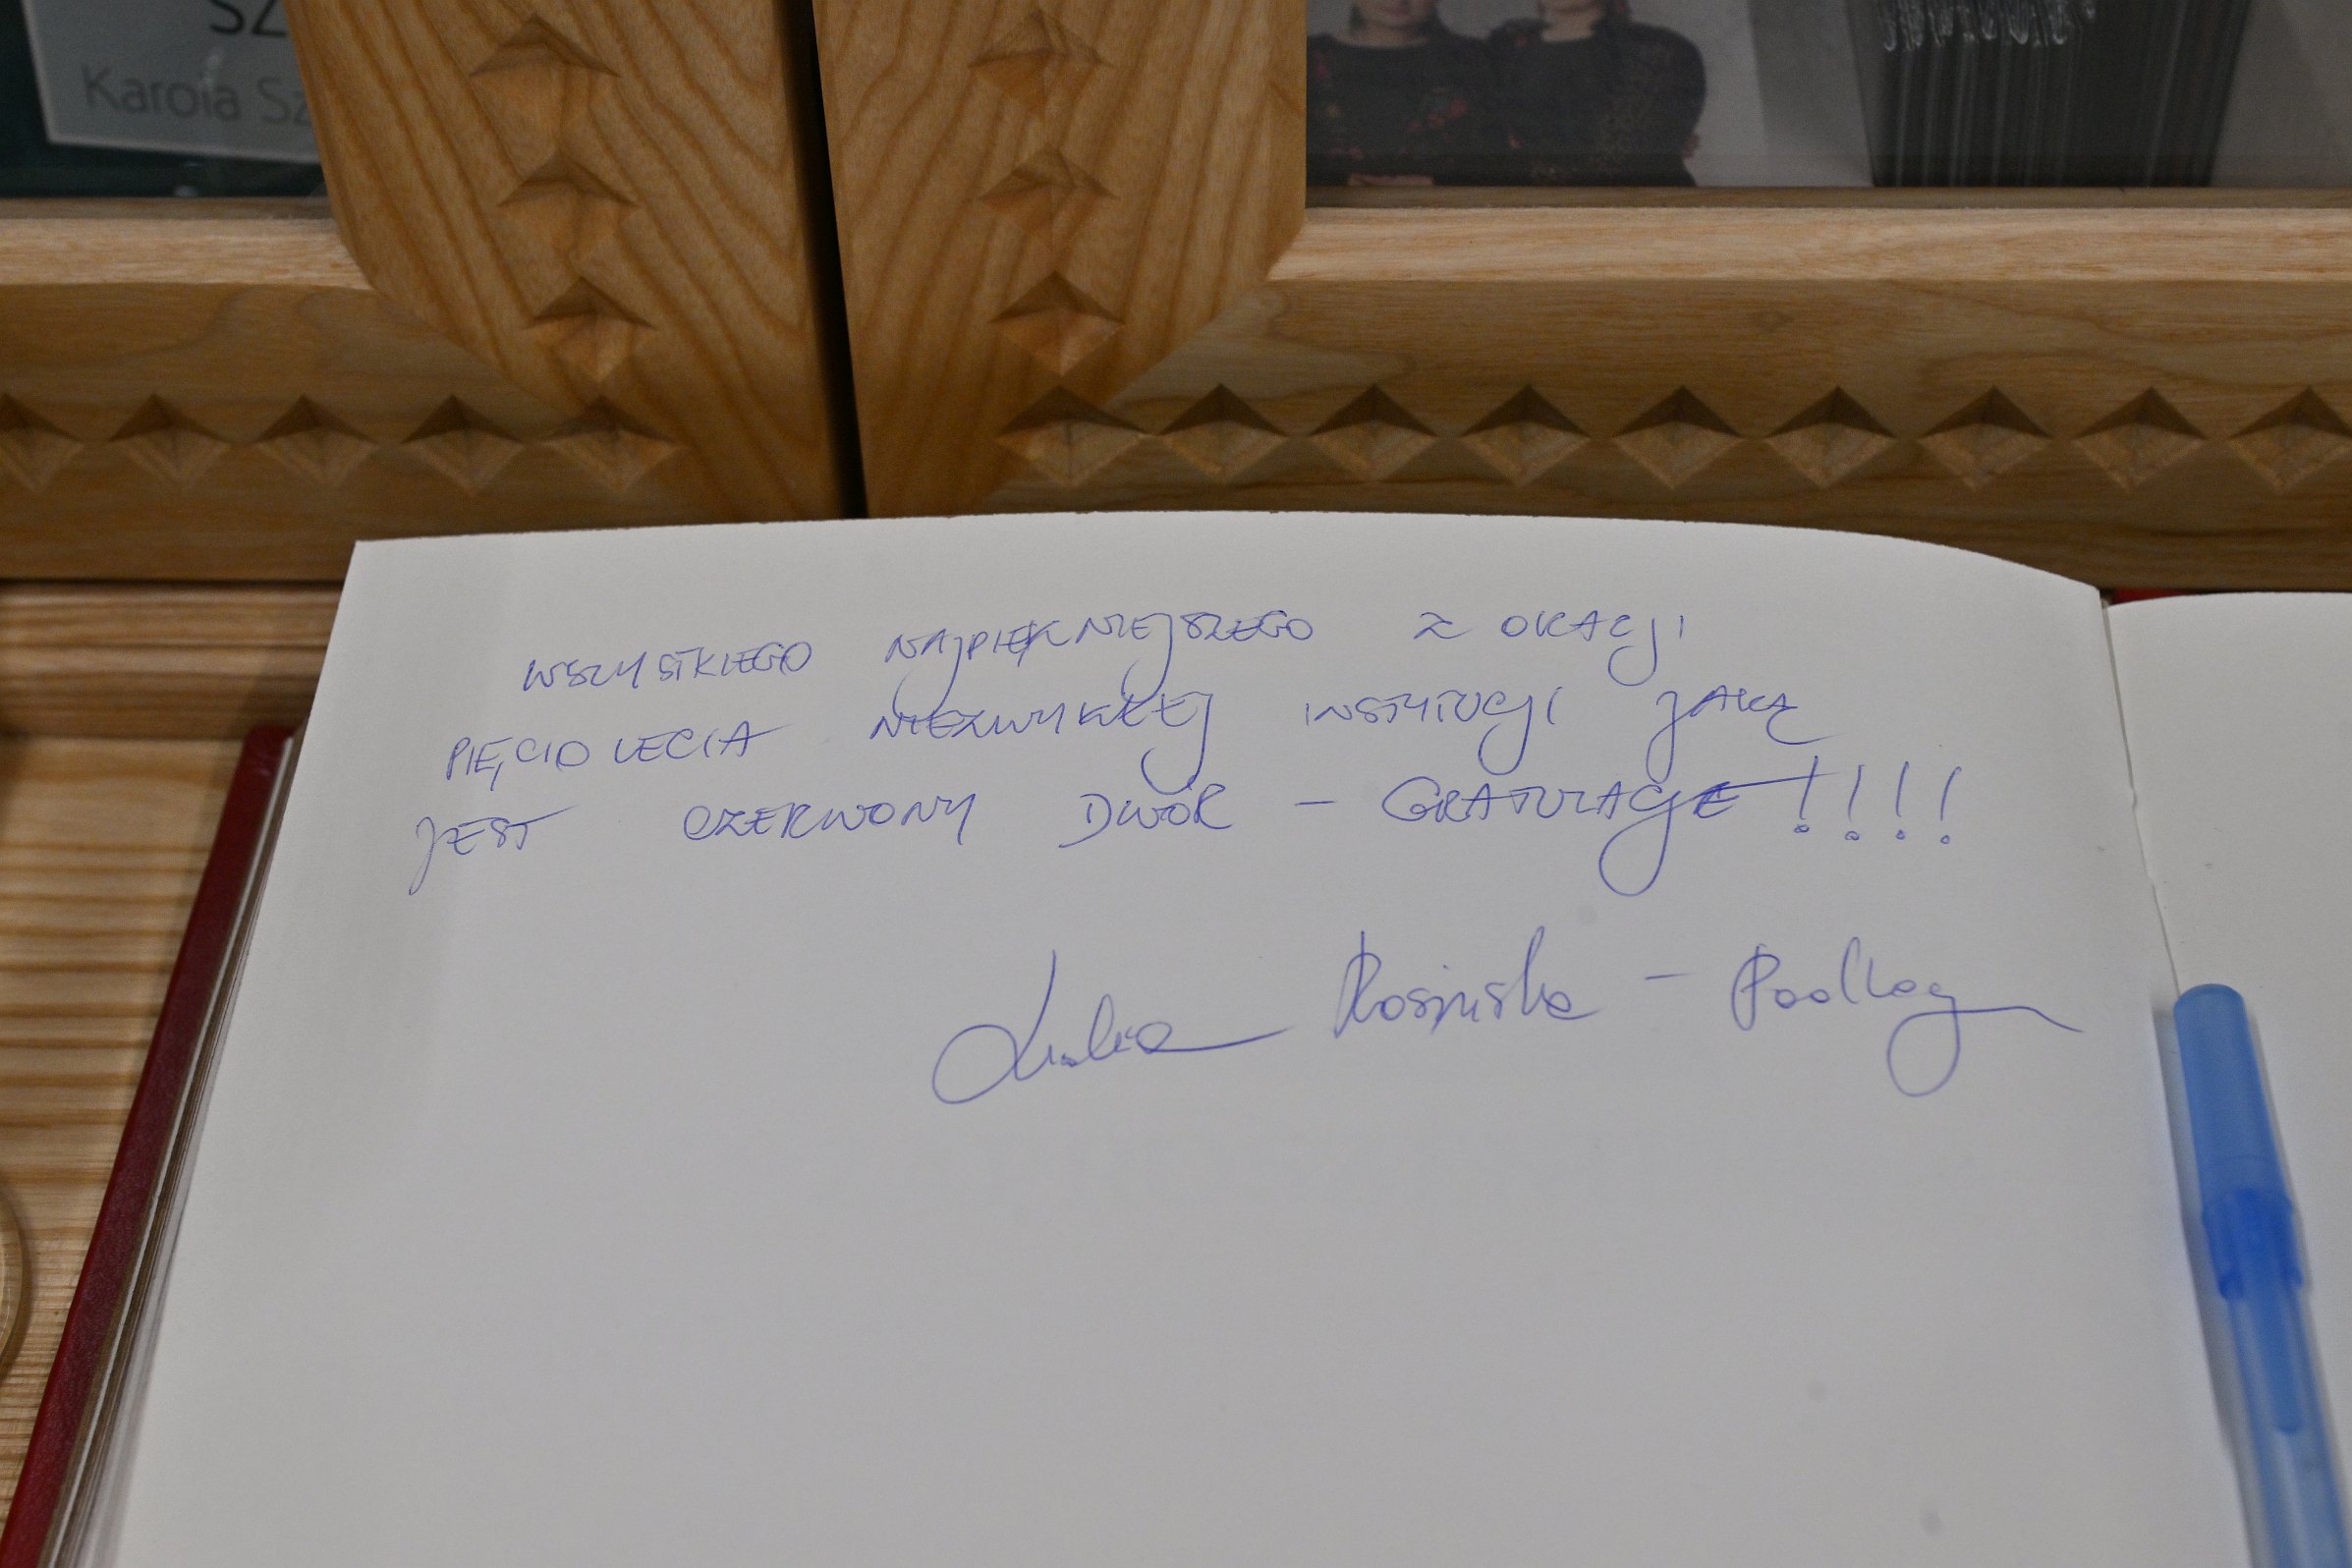 SZ
Karola Sz
WSZYSTKIEGO NAJPIĘKNIEJSZEGO Z OKACJI
PIĘCIOLECIA NIEZWYKŁEJ INSTYTUCJI JAKĄ
JEST CZERWONY DWÓR – GRATULACJE!!!!
Rosińska -